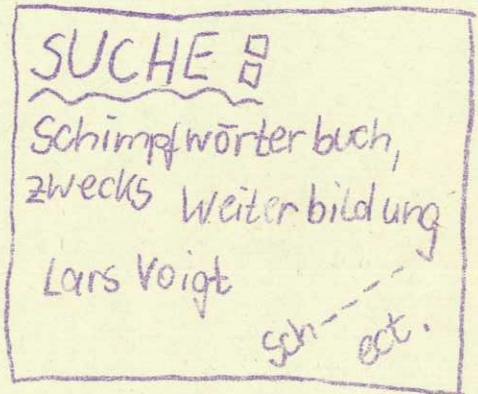 SUCHE:
Schimpfwörterbuch,
zwecks Weiterbildung
Lars Voigt
Sch---- ect.